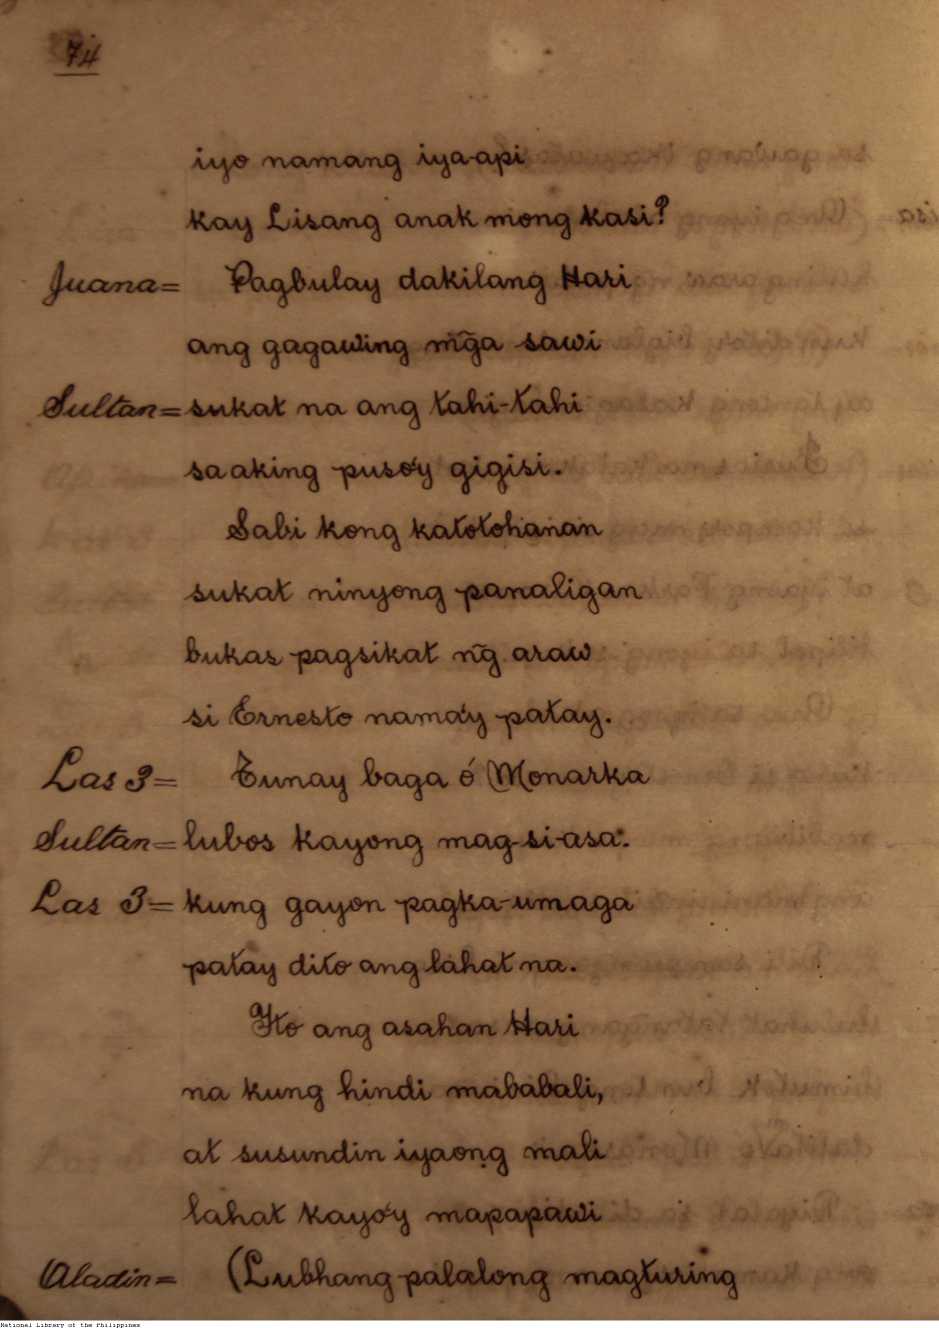 74
iyo namang iya-api
kay Lisang anak mong kasi?
Juana= Pagbulay dakilang Hari
ang gagawing mg̃a sawi
Sultan= sukat na ang tahi-tahi
sa aking puso'y gigisi.
Sabi kong katotohanan
sukat ninyong panaligan
bukas pagsikat ng̃ araw
si Ernesto nama'y patay.
Las 3= Tunay baga ó Monarka
Sultan= lubos kayong mag-si-asa.
Las 3= kung gayon pagka-umaga
patay dito ang lahat na.
Ito ang asahan Hari
na kung hindi mababali,
at susundin iyaong mali
lahat kayo'y mapapawi
Aladin= (Lubhang palalong magturing
National Library of the Philippines